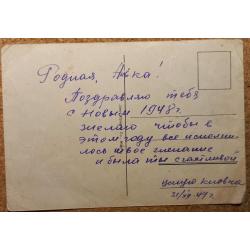 Родная, Авка!
Поздравляю тебя
с Новым 1948 г
желаю чтобы в
этом году все исполни-
лось твое желание
и была ты счастливой
целую
31/XII-47 г.